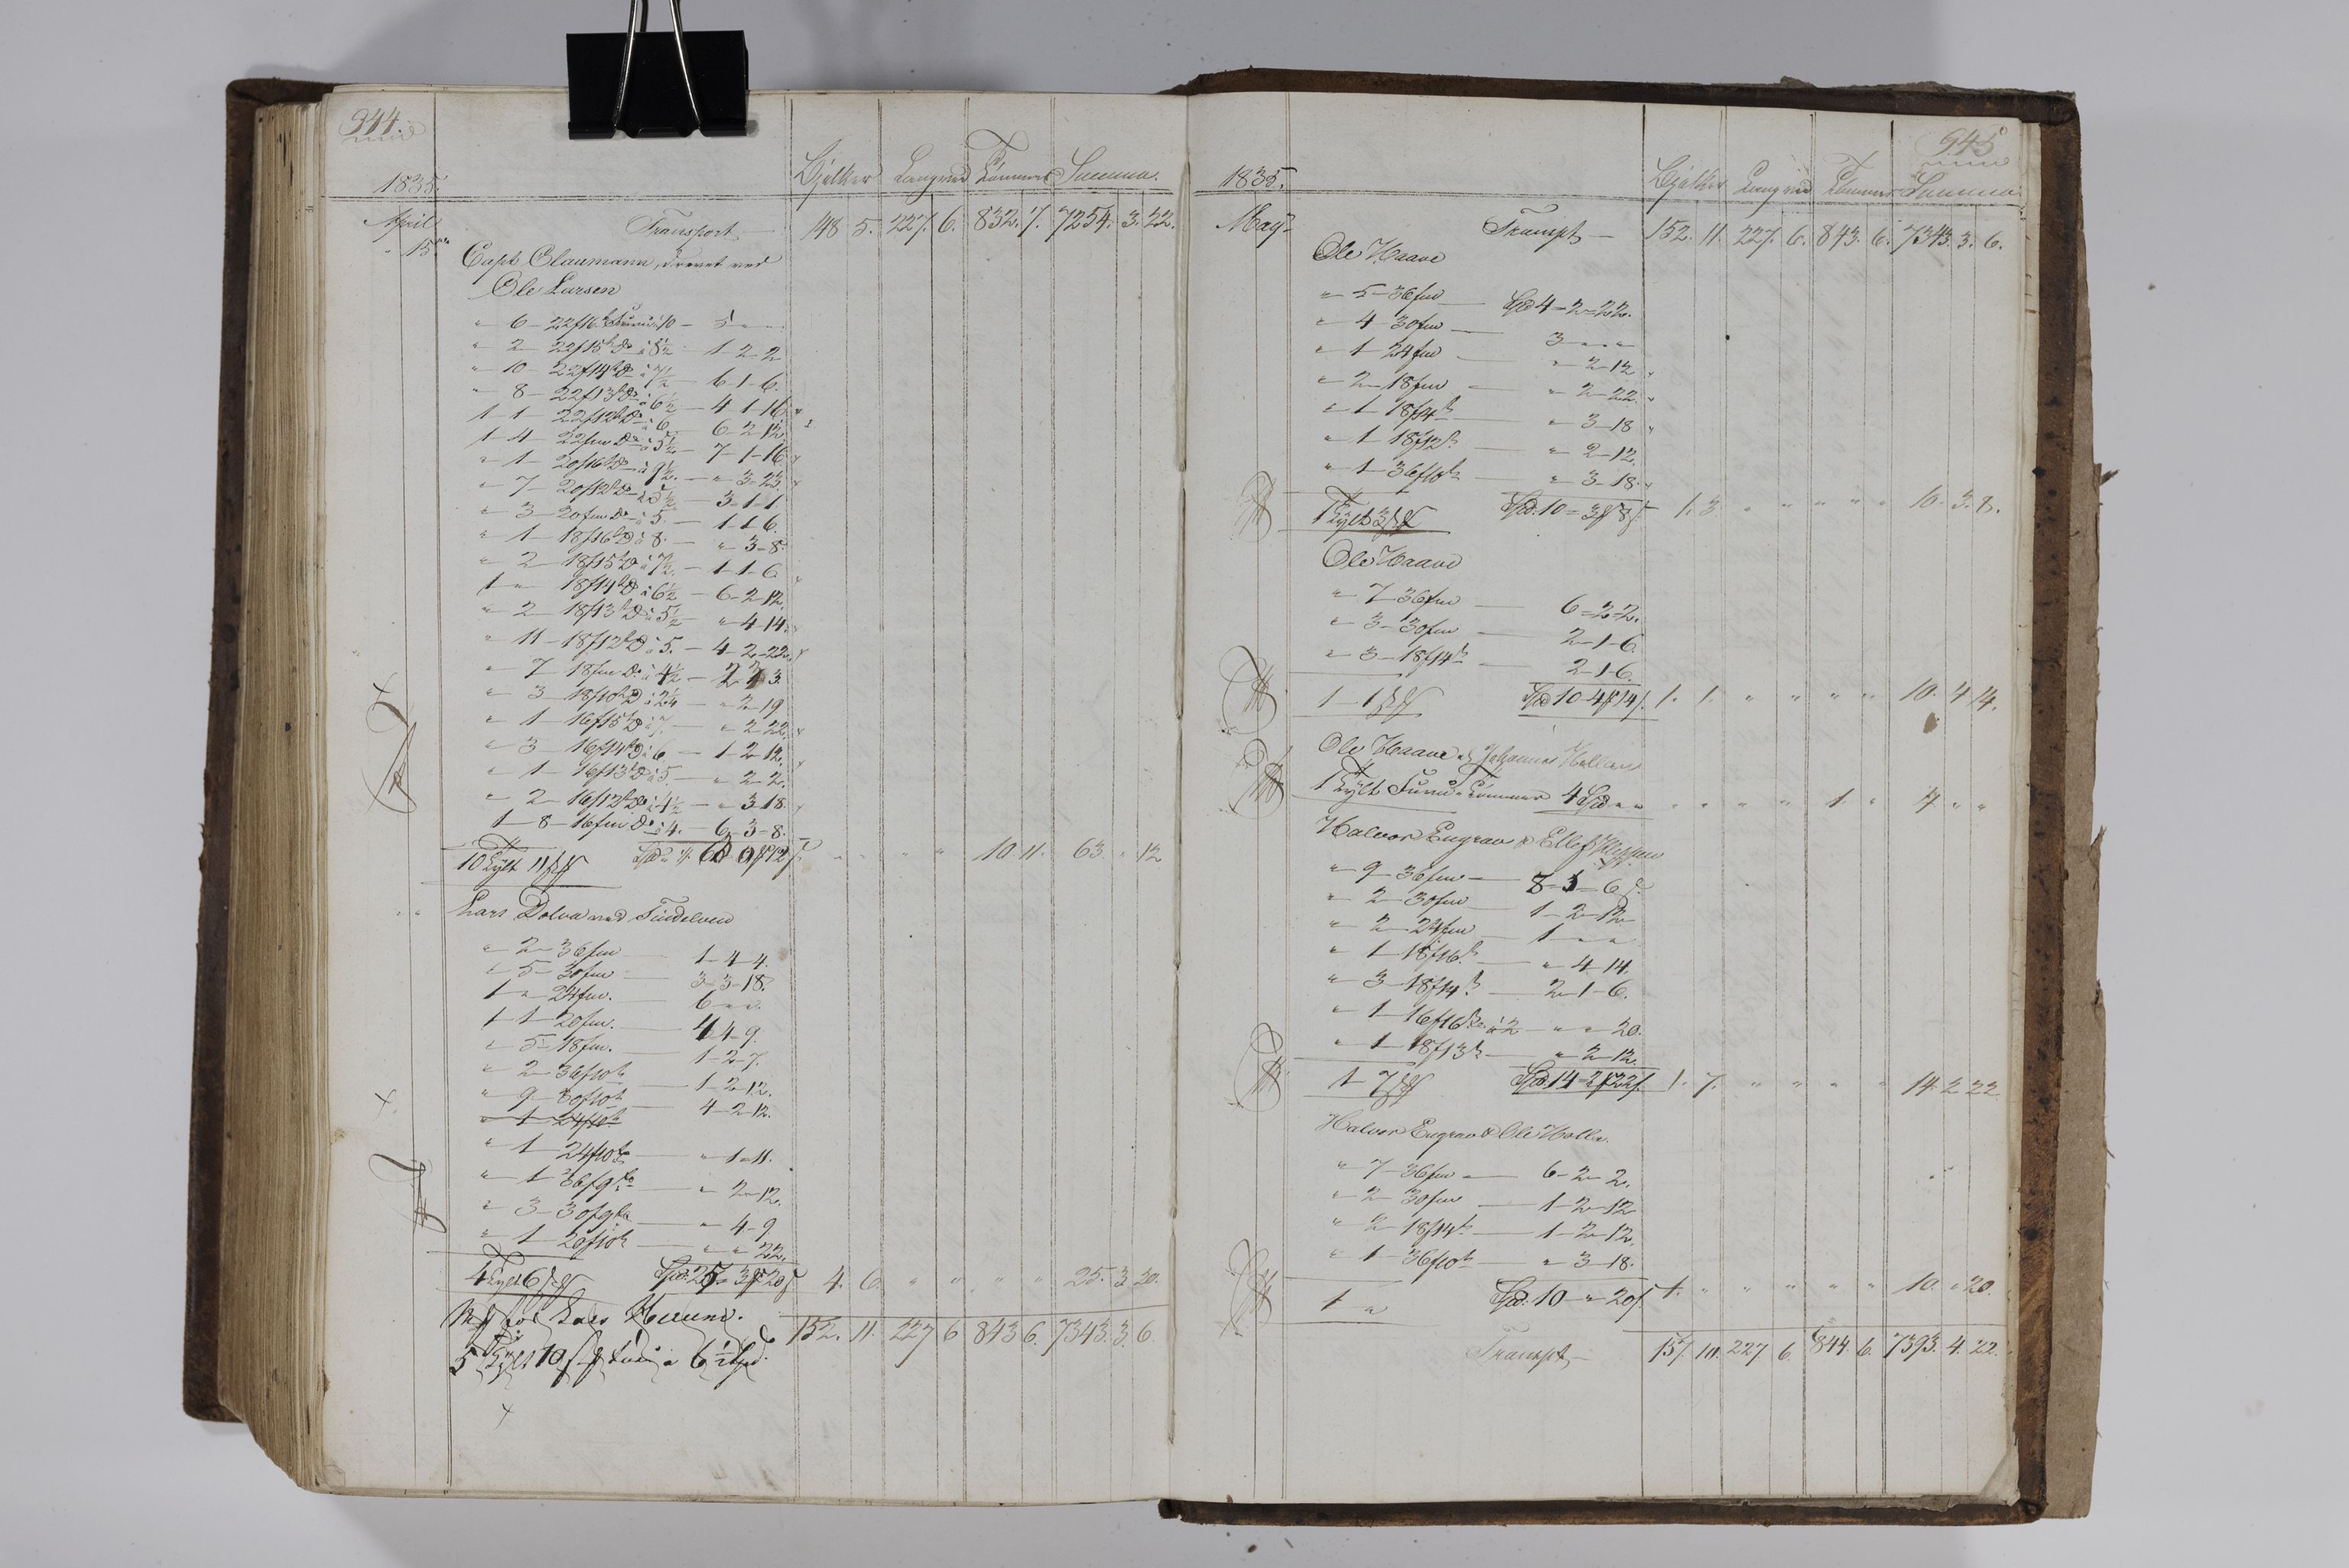 944.
1835. Bjelker Langved Tömmer Summa.
April Transport — 148 5. 227. 6. 832. 7. 7254. 3. 22.
" 15de Capt Claumann, drevet ved
Ole Larsen
" 6 - 22f16t Furu à 10 - 5 " "
" 2 - 22f15t Do à 8½ - 1-2-2
" 10 - 22f14t Do à 7½ - 6-1-6.
" 8 - 22f13t Do à 6½ - 4-1-16.
1-1 - 22f12t Do à 6 - 6-2-12.
1-4 - 22fm Do à 5½ - 7-1-16.
" 1 - 20f16t Do à 9½. - " 3-23.
" 7 - 20f12t Do à 5½ - 3-1-1.
" 3 - 20fm Do à 5. - 1-1-6.
" 1 - 18f16t D à 8. - " 3-8.
" 2 18f15t D à 7½. - 1-1-6.
1 " 18f14t D à 6½ - 6-2-12.
" 2 - 18f13t D à 5½ - " 4-14.
" 11 - 18f12t D à 5. - 4-2-22.
" 7 - 18fm Do à 4½ - 2 3.
" 3 18f10t D à 2¼ - " 2-19
" 1 - 16f15t D à 7. - " 2-22.
" 3 - 16f14t D à 6 - 1-2-12.
" 1 - 16f13t D à 5 - " 2-2.
" 2 - 16f12t Do à 4½ - " 3-18.
1-8 - 16fm Do à 4. - 6-3-8.
10 Tylt 11 12 " " " " 10. 11. 63. " 12
" " Lars Dolva ved Tindelven
" 2 - 36fm — 1-4-4.
" 5 - 30fm — 3-3-18.
1 " 24fm. — 6 " "
1-1 20fm. — 4-4-9.
" 5 - 18fm. — 1-2-7.
" 2 - 36f10t — 1-2-12.
" 9 - 30f10t — 4-2-12.
" 1 24f10t
" 1 24f10t — " 1-11.
" 1 36f9t — " 2-12.
" 3 - 30f9t — " 4-9
" 1 - 20f10t — " " 22.
4 Tylt 6 Spd. 25 3 20 4. 6. " " " " 25. 3 20.
for Lars
5 Tylt 10 à 6½ Spd. 152. 11. 227 6 843 6. 7343. 3. 6.
945
1835. Bjelker Langved Tömmer Summa
May Transpt — 152. 11. 227. 6. 843. 6. 7343. 3. 6.
Ole Haave
" 5 - 36fm — Spd 4-2-22.
" 4 - 30fm — 3 " "
" 1 24fm — " 2-12
" 2 - 18fm — " 2-22.
" 1 18f14t — " 3-18
" 1 18f12t — " 2-12.
" 1 - 36f10t — " 3-18.
1 Tylt 3 Spd. 10 = 3 8 1. 3. " " " " 10. 3. 8.
Ole Haave
" 7 - 36fm — 6-2-2.
" 3 - 30fm — 2-1-6
" 3 - 18f14t — 2-1-6.
1-1 Spd 10-4 14 1. 1. " " " " 10. 4 14.
Ole Haave og Johannes
1 Tylt Furu Tömmer 4 Spd " " " " " " 1. " 4 " "
Halvor Engrav & Ellef
" 9 - 36fm — 8 6
" 2 - 30fm — 1-2-12
" 2 - 24fm — 1 " "
" 1 18f16t — " 4-14.
" 3 - 18f14t — 2-1-6.
" 1 16f16t à 2 " " 20.
" 1 18f13t — " 2-12.
1-7 Spd. 14=2 22 1. 7. " " " " 14. 2 22.
Halvor Engrav & Ole Holla.
" 7 - 36fm — 6-2-2.
" 2 - 30fm — 1-2-12
" 2 - 18f14t — 1-2-12.
" 1 - 36f10t — " 3-18.
1 " Spd. 10 - " 20 1. " " " " " 10. " 20.
Transpt — 157. 10. 227. 6. 844. 6. 7393. 4. 22.